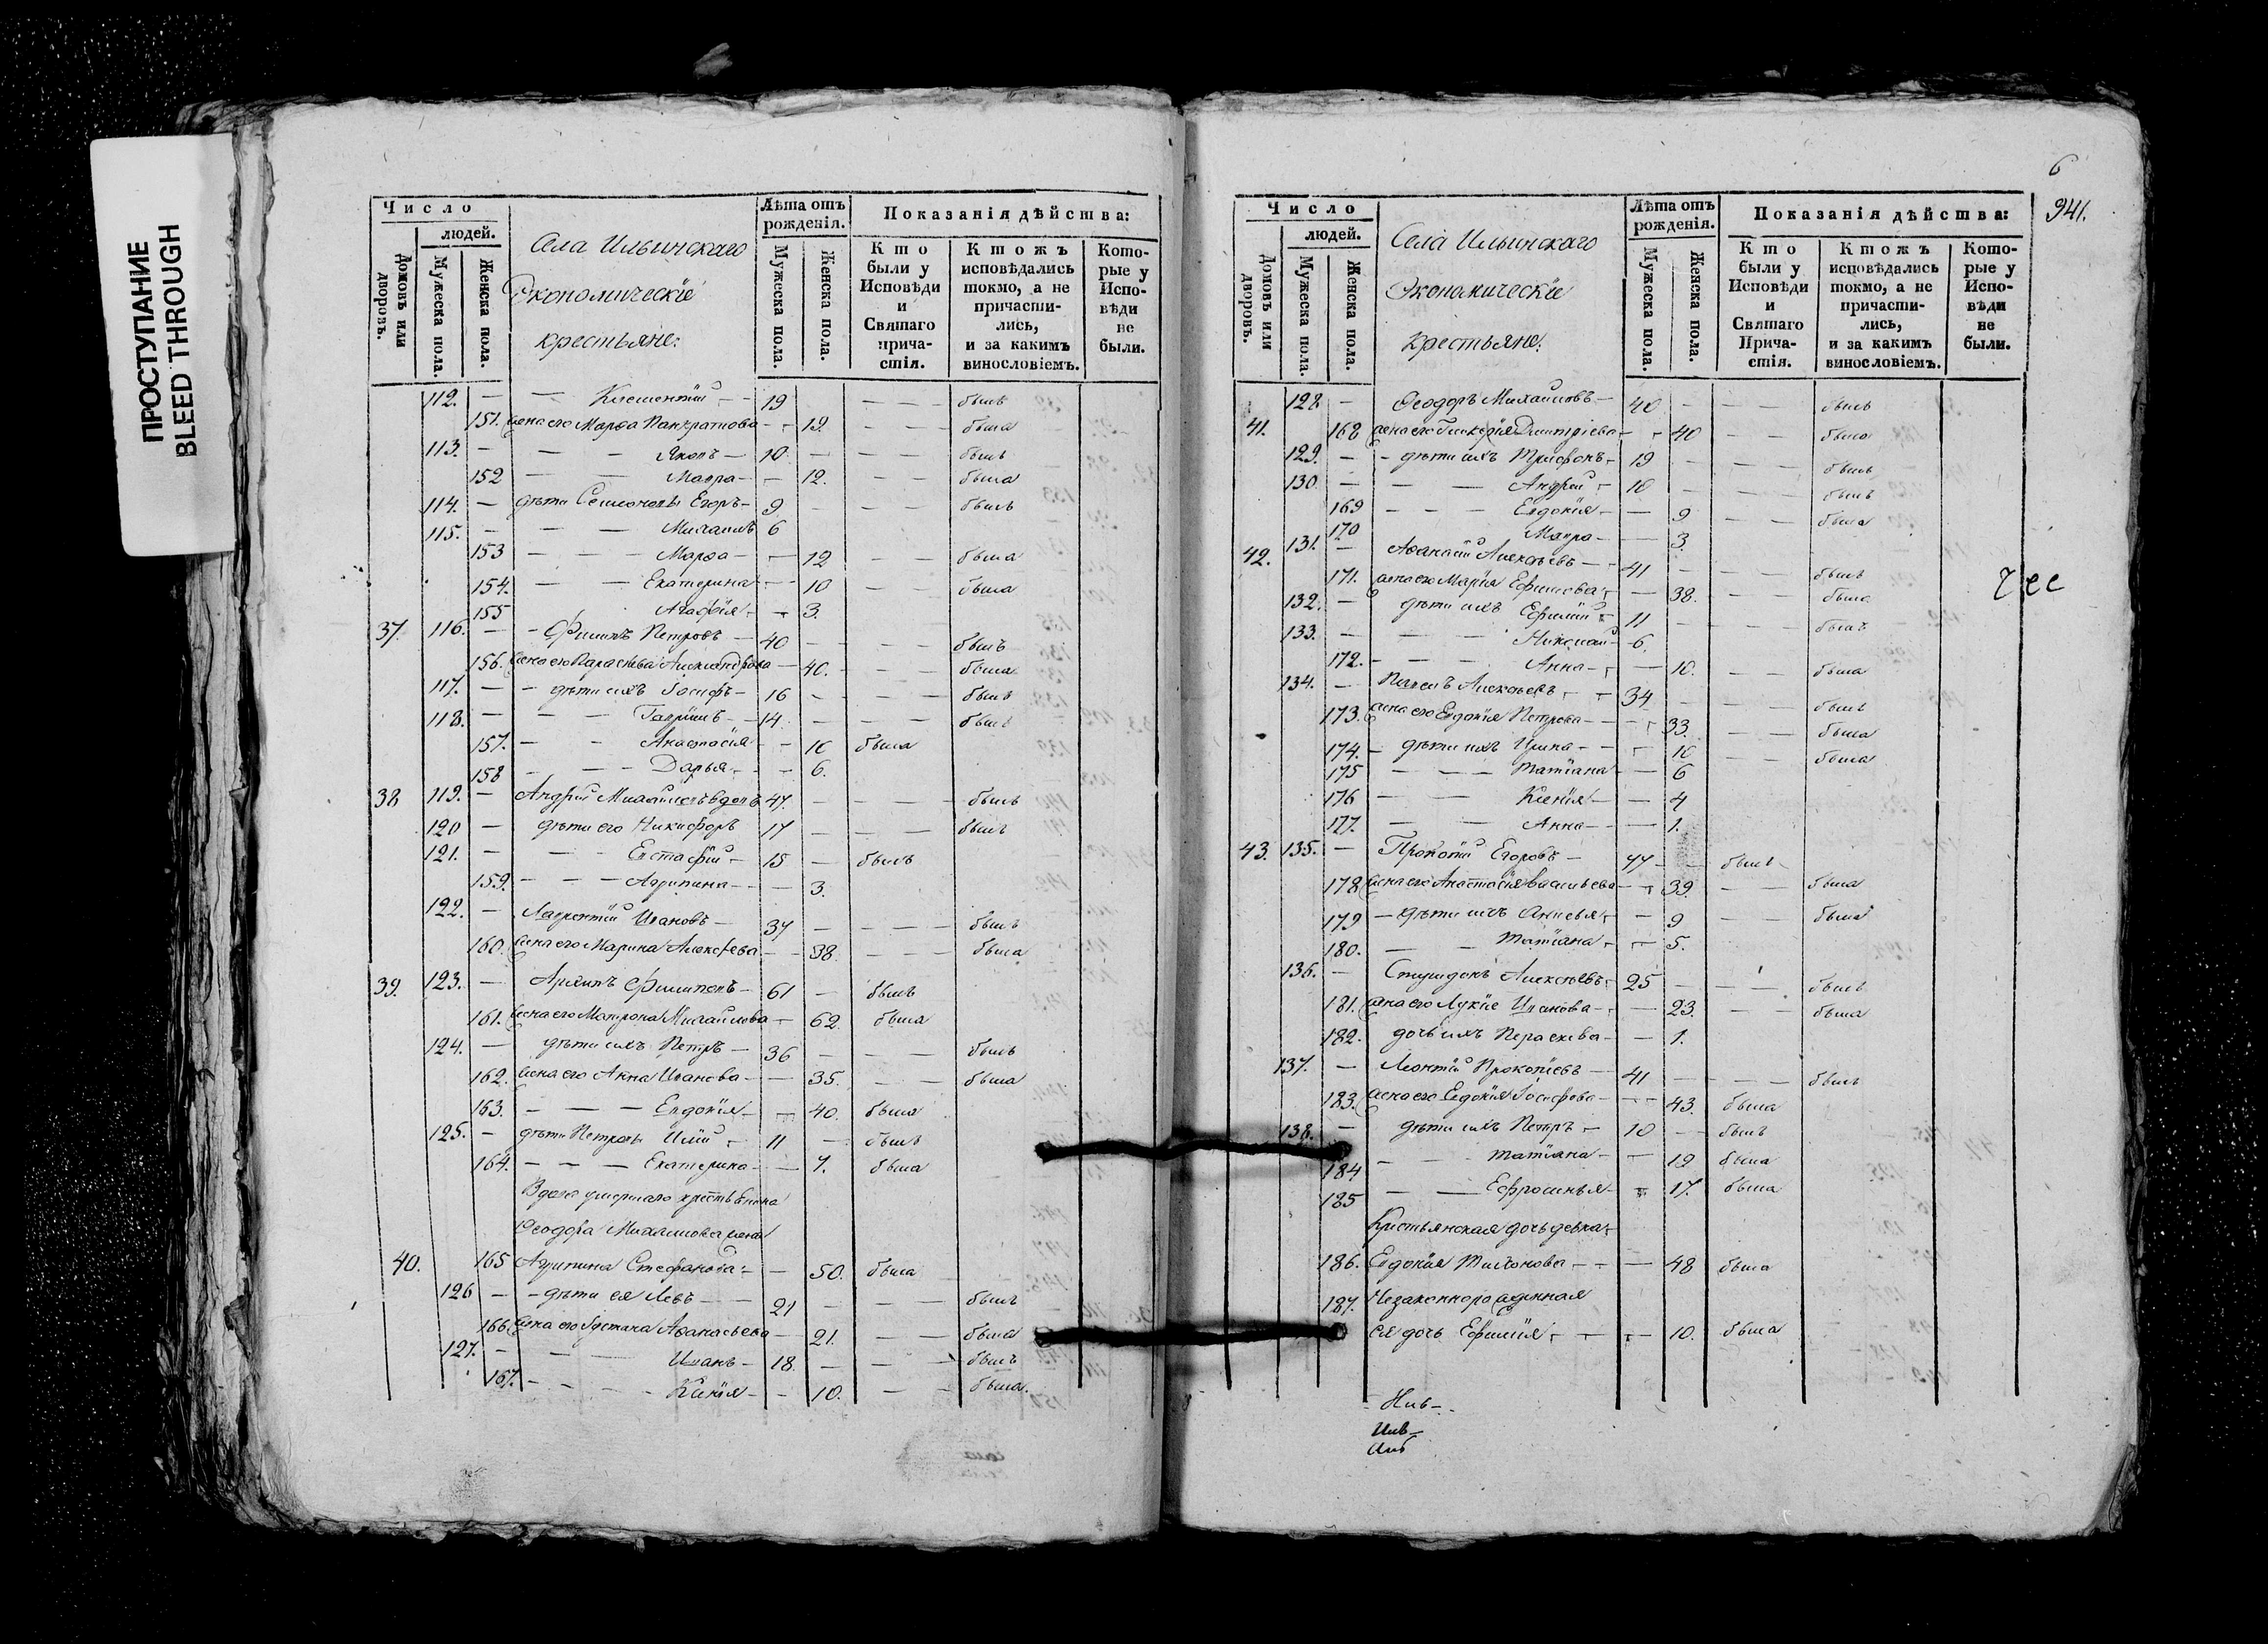 ПРОСТУПАНИЕ
BLEED THROUGH
Число
людей.
Домовъ или дворовъ.
Мужеска пола.
Женска пола.
Села Ильинскаго
Экономическіе
крестьяне:
Лѣта отъ рожденія.
Мужеска пола.
Женска пола.
Показанія дѣйства:
Кто были у Исповѣди и Святаго прича- стія.
Ктожъ исповѣдались токмо, а не причасти- лись, и за какимъ винословіемъ.
Кото- рые у Испо- вѣди не были.
112. — — Климентій — 19 — — былъ
151. жена его Марѳа Панкратова — 19. — — была
113. — — Яковъ — 10 — — — былъ
152 — — Мавра — — 12. — — была
114. — дѣти Семионовы Егоръ — 9 — — — былъ
115. — — Михаилъ 6
153 — — — Марѳа — — 12 — — была
154. — — Екатерина — 10 — — была
155 Агафія — 3.
37. 116. — — Филипъ Петровъ — 40 — — былъ
156. жена его Параскева Александрова — 40. — — была
117. — — дѣти ихъ Іосифъ — 16 — — — былъ
118. — — — Гавріилъ — 14. — — — былъ
157. — — Анастасія — — 10 была
158 — — — Дарья — — 6.
38 119. — Андрей Михаиловъ вдовъ 47. — — — былъ
120 — дѣти его Никифоръ 17 — — — былъ
121. — — — Евстафій — 15 — былъ
159. — — — Агрипина — — 3.
122. — Лаврентій Ивановъ — 37 — — — былъ
160. жена его Марина Алексѣева — — 38. — — была
39. 123. — Архипъ Филиповъ — 61 — былъ
161. жена его Матрона Михаилова — 62. была
124. — дѣти ихъ Петръ — 36 — — — былъ
162. жена его Анна Иванова — — 35. — — была
163. — — — Евдокія — — 40. была
125. — дѣти Петровы Илій — 11 — былъ
164. — — — Екатерина — — 7. была
Вдова умершаго крестьянина
Ѳеодора Михаилова жена
40. 165 Агрипина Стефанова — — 50. была
126 — — дѣти ея Левъ — — 21 — — — былъ
166. жена его Іустина Аѳанасьева — 21. — — была
127. — — — Иванъ — 18. — — — былъ
167. — — — — Ксенія — — 10. — — была.
6
941.
Число
людей.
Домовъ или дворовъ.
Мужеска пола.
Женска пола.
Села Ильинскаго
Экономическіе
крестьяне:
Лѣта отъ рожденія.
Мужеска пола.
Женска пола.
Показанія дѣйства:
Кто были у Исповѣди и Святаго Прича- стія.
Ктожъ исповѣдались токмо, а не причасти- лись, и за какимъ винословіемъ.
Кото- рые у Испо- вѣди не были.
128 — Ѳеодоръ Михаиловъ — 40 — — — былъ
41. 168 жена его Гликерія Дмитріева — — 40 — — была
129. — — дѣти ихъ Трифонъ — 19 — — — былъ
130. — — — Андрей — 10 — — — былъ
169 — — — Евдокія — — 9 — — была
170 Мавра — — 3.
42. 131. — Аѳанасій Алексѣевъ — — 41 — — — былъ
171. жена его Марія Ефимова — — 38. — — была
132. — дѣти ихъ Ефимій — 11 — — — былъ
133. — — — — Николай — 6.
172. — — — Анна — — 10. — — была
134. — Павелъ Алексѣевъ — — 34 — — — былъ
173. жена его Евдокія Петрова — — 33. — — была
174. — дѣти ихъ Ирина — — 10 — — была
175 — — — Татіана — — 6
176 — — Ксенія — — 4
177. — — Анна — — 1.
43. 135. — Прокопій Егоровъ — 47 — былъ
178 жена его Анастасія Васильева — — 39. — — была
179 — дѣти ихъ Анисья — — 9 — — была
180. — — Татіана — — 5.
136. — Спиридонъ Алексѣевъ — 25 — — — былъ
181. жена его Лукія Иванова — — 23. — — была
182. дочь ихъ Параскева — — 1.
137. — Леонтій Прокопіевъ — 41 — — — былъ
183. жена его Евдокія Іосифова — — 43. была
138. — дѣти ихъ Петръ — 10 — былъ
184 — — Татіана — — 19 была
185 — — Ефросинья — — 17. была
Крестьянская дочь девка
186. Евдокія Тихонова — — — 48 была
187. Незаконнорожденная
ея дочь Ефимія — — — 10. была